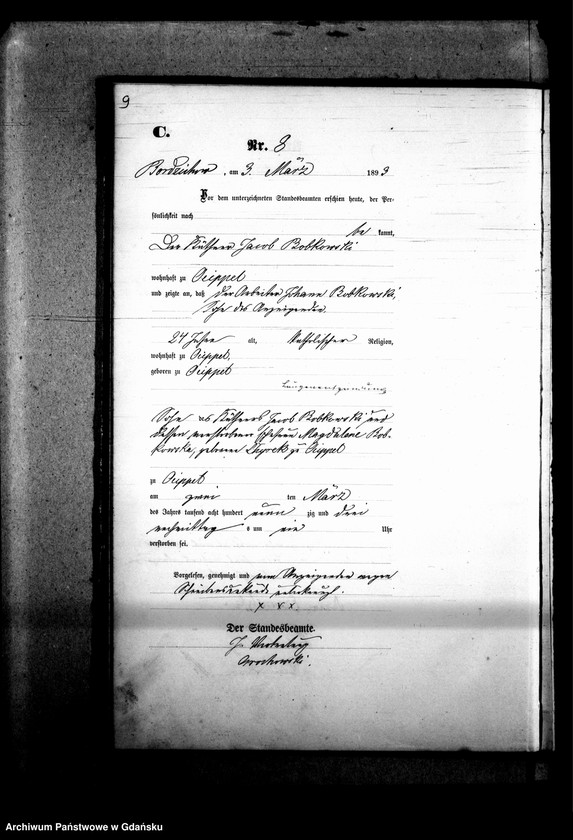 9
C.
Nr. 8
am 3. März 1893
Vor dem unterzeichneten Standesbeamten erschien heute, der Per-
sönlichkeit nach
be kannt,
Der Jacob Bobkowski
wohnhaft zu Osieppel
und zeigte an, daß der Arbeiter Johann Bobkowski,
Sohn des Anzeigenden,
24 Jahre alt, katholischer Religion,
wohnhaft zu
geboren zu
Lungenentzündung
Sohn des Jacob Bobkowski und
dessen verstorbenen Ehefrau Magdalene Bob-
kowska, geborene zu
zu
am zwei ten März
des Jahres tausend acht hundert neun zig und drei
nachmittag s um Uhr
verstorben sei.
Vorgelesen, genehmigt und vom Anzeigenden wegen
x x x
Der Standesbeamte.
Archiwum Państwowe w Gdańsku